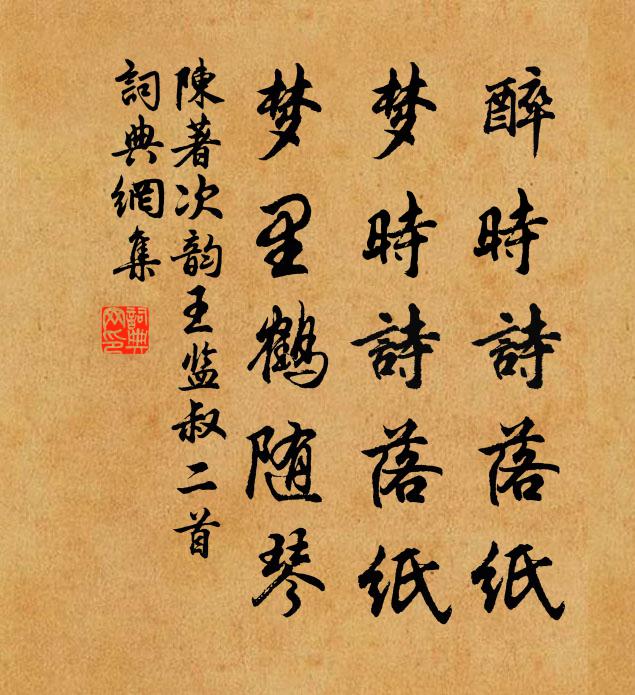 醉時詩落紙
梦時詩落紙
梦里鶴随琴
陳著次韵王监叔二首
詞典網集
詞典網印